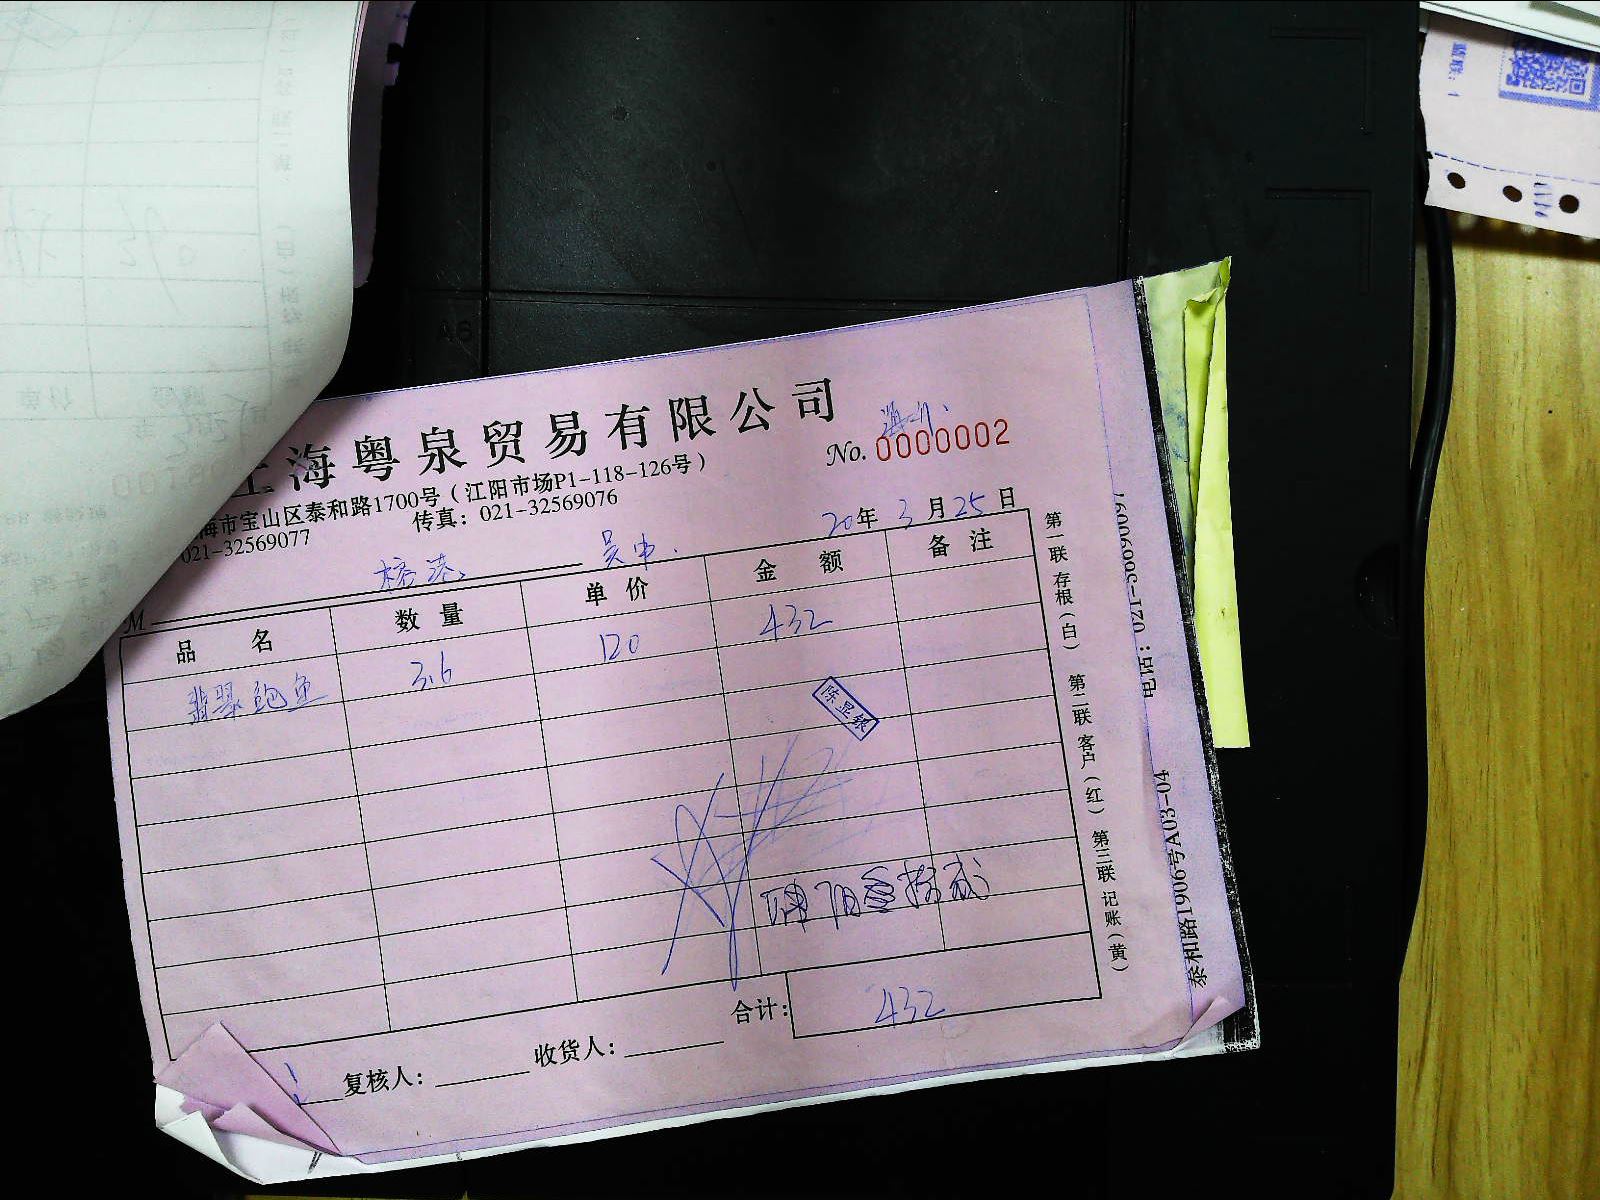 上海粤泉贸易有限公司
No. 0000002
海市宝山区泰和路1700号（江阳市场P1-118-126号）
021-32569077 传真：021-32569076
20年 3月25日
M 榕港 吴中
品名 数量 单价 金额 备注
翡翠鲍鱼 3.6 120 432
陈显银
合计： 432
复核人： 收货人：
第一联 存根（白） 第二联 客户（红） 第三联 记账（黄）
泰和路1906号A03-04
A5